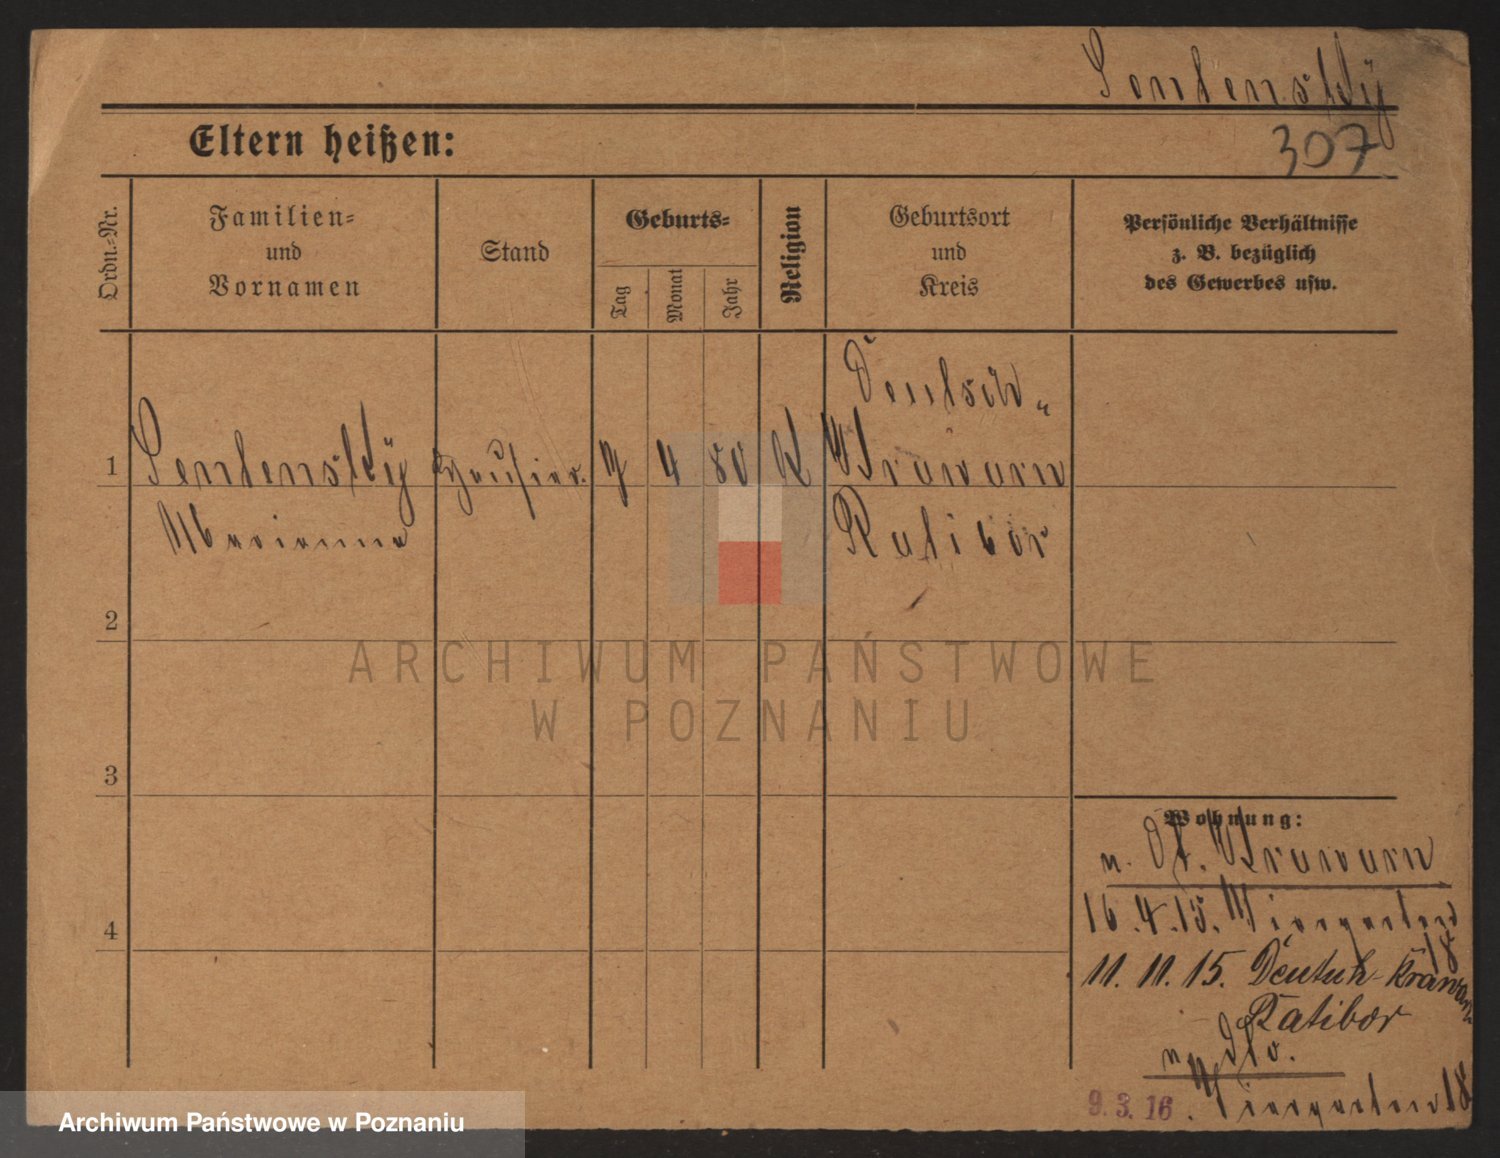 307
Eltern heißen:
Ordn.=Nr.
Familien=
und
Vornamen
Stand
Geburts=
Tag
Monat
Jahr
Religion
Geburtsort
und
Kreis
Persönliche Verhältnisse
z. B. bezüglich
des Gewerbes usw.
Deutsch-
1
4 80 K Krawarn
Marianna
Ratibor
2
ARCHIWUM PAŃSTWOWE
W POZNANIU
3
Wohnung:
n. Dt. Krawarn
4
16.4.15.
18
11. 11. 15. Deutsch-Krawarn
Ratibor
n. dto.
9.3.16. 18
Archiwum Państwowe w Poznaniu